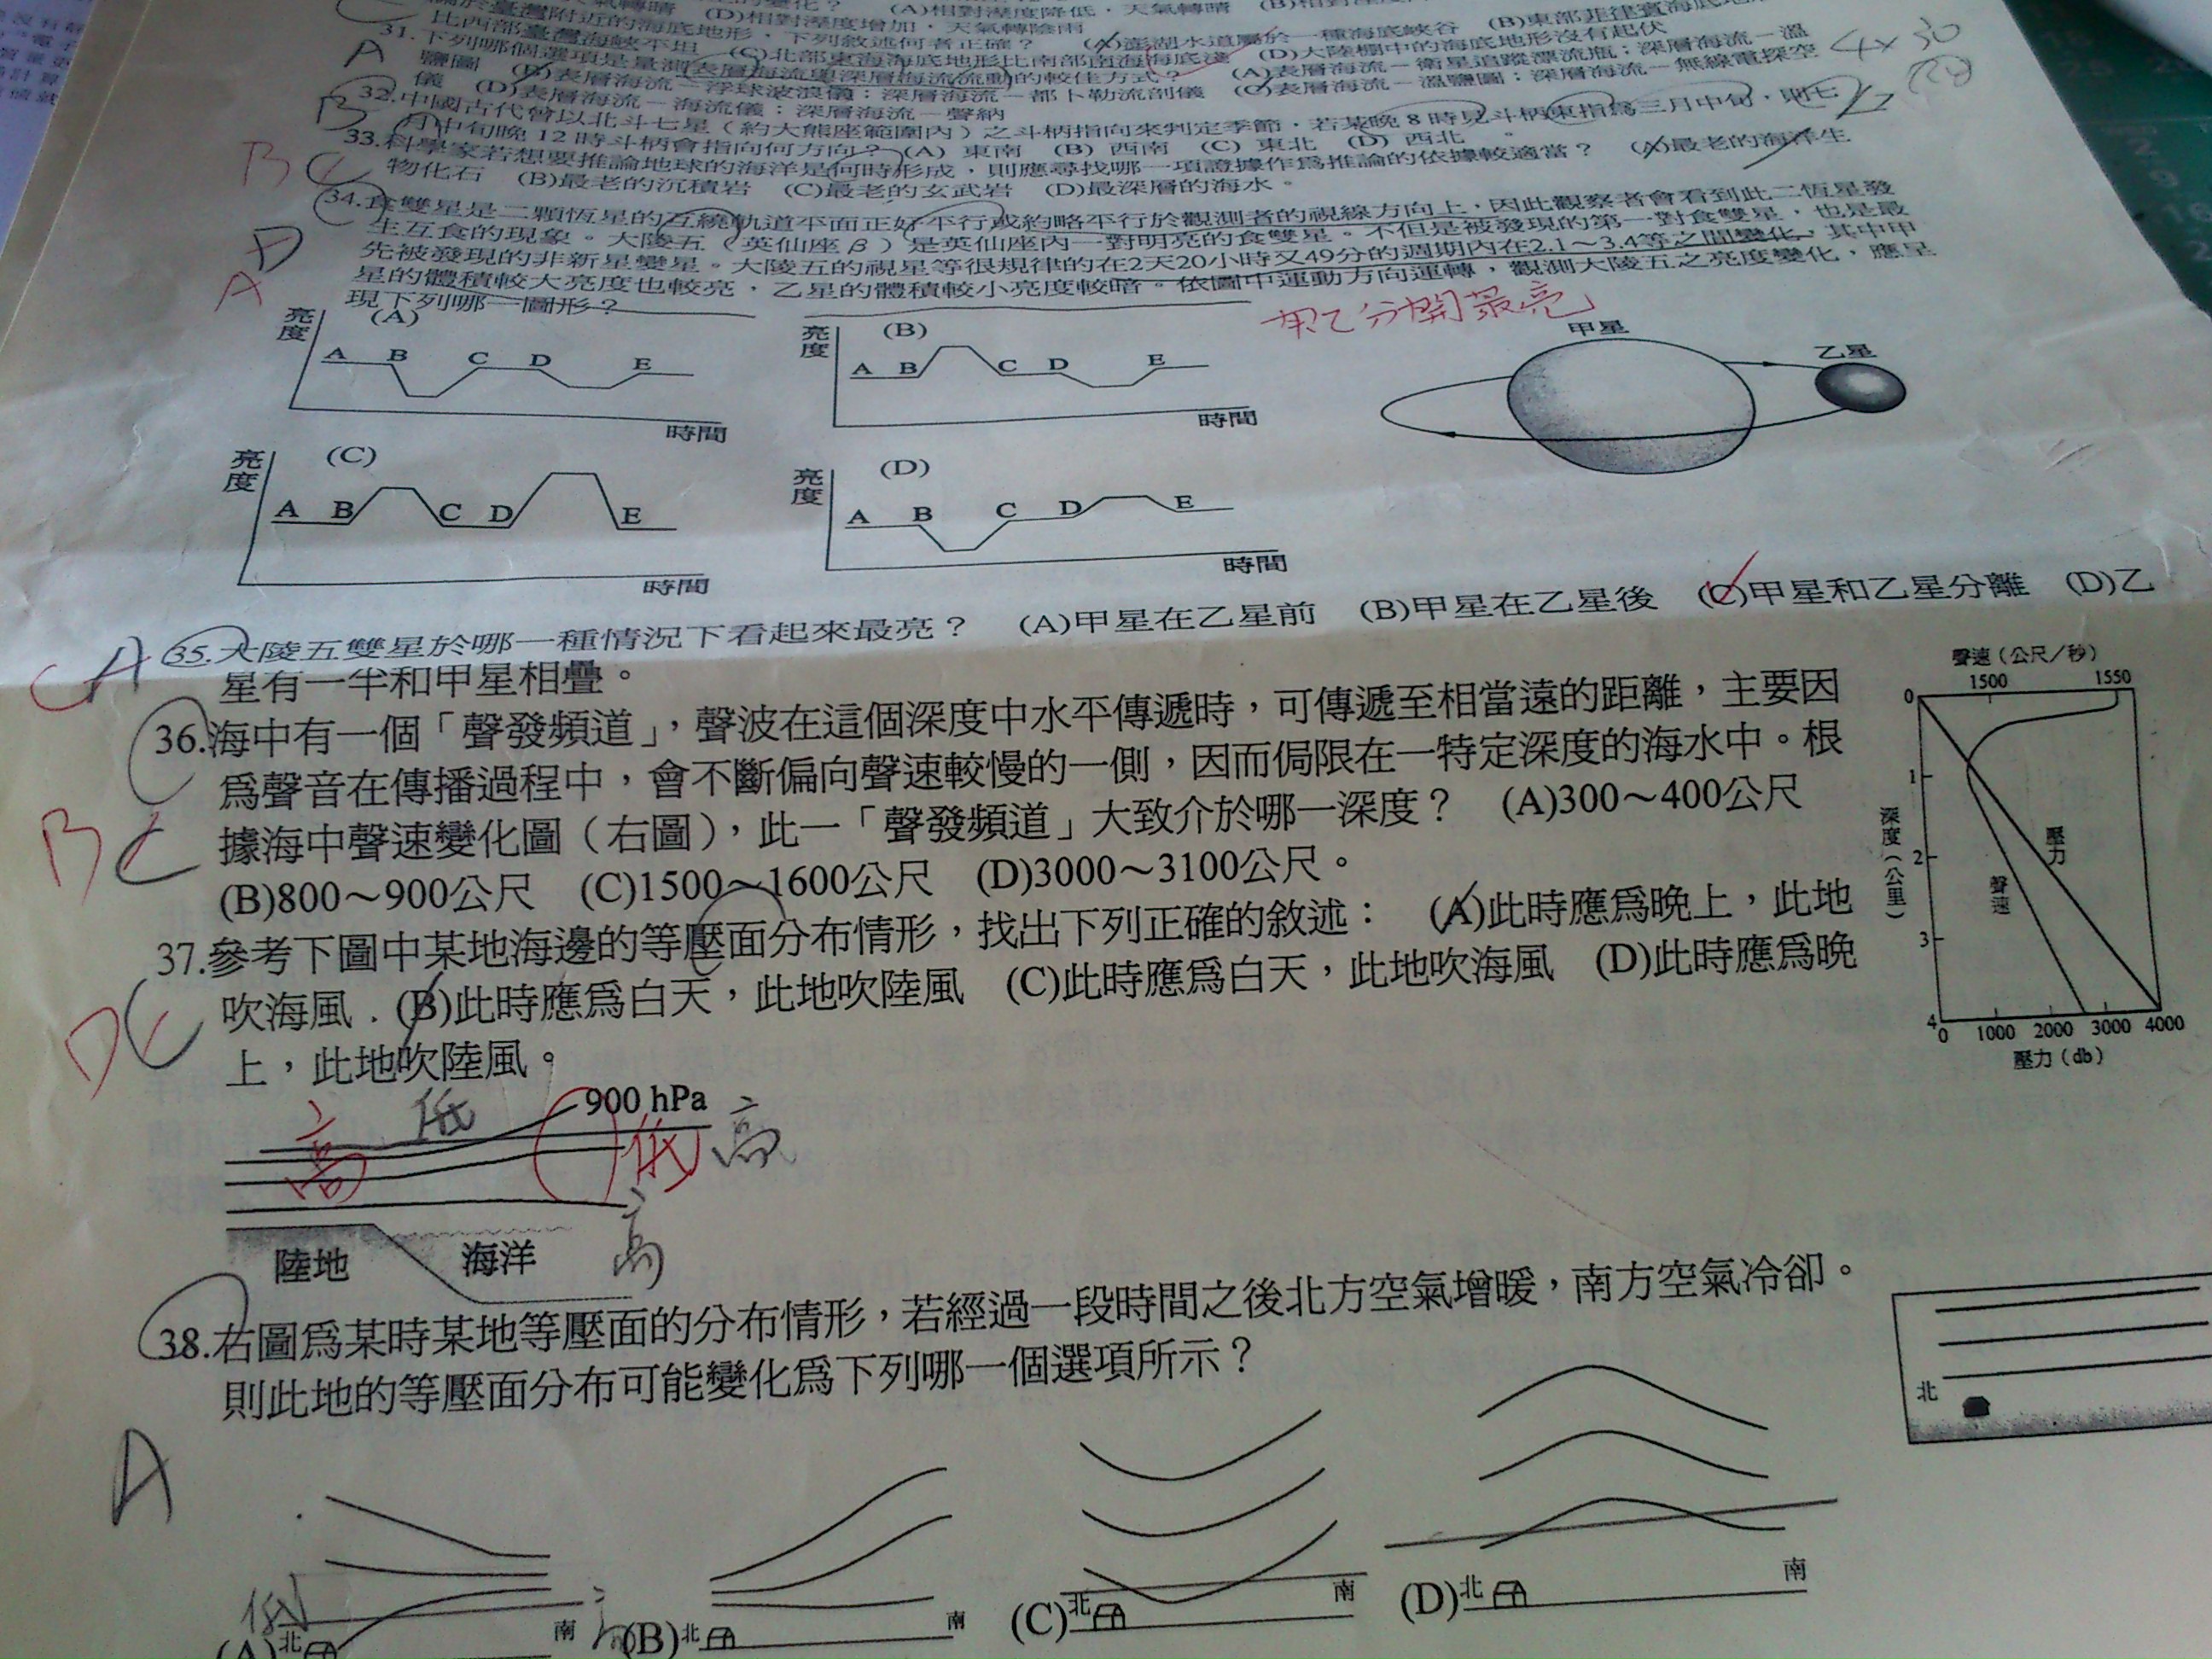 (A)相對深度降低，天氣轉晴
天氣轉晴 (D)相對深度增加，天氣轉陰雨
附近的海底地形，下列敘述何者正確？ (A)澎湖水道屬於一種海底峽谷
比西部臺灣海峽不坦 (C)北部東海海底地形比南部南海海底淺 (D)大陸棚中的海底地形沒有起伏
31.下列哪個選項是量測表層海流與深層海流流動的較佳方式？ (A)表層海流－衛星追蹤漂流瓶；深層海流－溫
鹽圖 (B)表層海流－浮球波浪儀；深層海流－都卜勒流剖儀 (C)表層海流－溫鹽圖；深層海流－無線電探空
儀 (D)表層海流－海流儀；深層海流－聲納
A
32.中國古代曾以北斗七星（約大熊座範圍內）之斗柄指向來判定季節，若某晚8時見斗柄東指為三月中旬，則七
月中旬晚12時斗柄會指向何方向？(A) 東南 (B) 西南 (C) 東北 (D) 西北
B
33.科學家若想要推論地球的海洋是何時形成，則應尋找哪一項證據作為推論的依據較適當？ (A)最老的海洋生
物化石 (B)最老的沉積岩 (C)最老的玄武岩 (D)最深層的海水。
B C
34.食雙星是二顆恆星的互繞軌道平面正好平行或約略平行於觀測者的視線方向上，因此觀察者會看到此二恆星發
生互食的現象。大陵五（英仙座β）是英仙座內一對明亮的食雙星。不但是被發現的第一對食雙星，也是最
先被發現的非新星變星。大陵五的視星等很規律的在2天20小時又49分的週期內在2.1～3.4等之間變化，其中甲
星的體積較大亮度也較亮，乙星的體積較小亮度較暗。依圖中運動方向運轉，觀測大陵五之亮度變化，應呈
現下列哪一圖形？
D
A
分開最亮
亮度 (A) A B C D E 時間
亮度 (B) A B C D E 時間
甲星 乙星
亮度 (C) A B C D E 時間
亮度 (D) A B C D E 時間
35.大陵五雙星於哪一種情況下看起來最亮？ (A)甲星在乙星前 (B)甲星在乙星後 (C)甲星和乙星分離 (D)乙
星有一半和甲星相疊。
C A
36.海中有一個「聲發頻道」，聲波在這個深度中水平傳遞時，可傳遞至相當遠的距離，主要因
為聲音在傳播過程中，會不斷偏向聲速較慢的一側，因而侷限在一特定深度的海水中。根
據海中聲速變化圖（右圖），此一「聲發頻道」大致介於哪一深度？ (A)300～400公尺
(B)800～900公尺 (C)1500～1600公尺 (D)3000～3100公尺。
B C
聲速（公尺／秒）
1500 1550
0
1
2
3
4
深度（公里）
壓力
聲速
0 1000 2000 3000 4000
壓力（db）
37.參考下圖中某地海邊的等壓面分布情形，找出下列正確的敘述： (A)此時應為晚上，此地
吹海風．(B)此時應為白天，此地吹陸風 (C)此時應為白天，此地吹海風 (D)此時應為晚
上，此地吹陸風。
D C
900 hPa
高 低 低 高
高
陸地 海洋
38.右圖為某時某地等壓面的分布情形，若經過一段時間之後北方空氣增暖，南方空氣冷卻。
則此地的等壓面分布可能變化為下列哪一個選項所示？
A
北
低
(A)北 南
(B)北 南
(C)北 南
(D)北 南